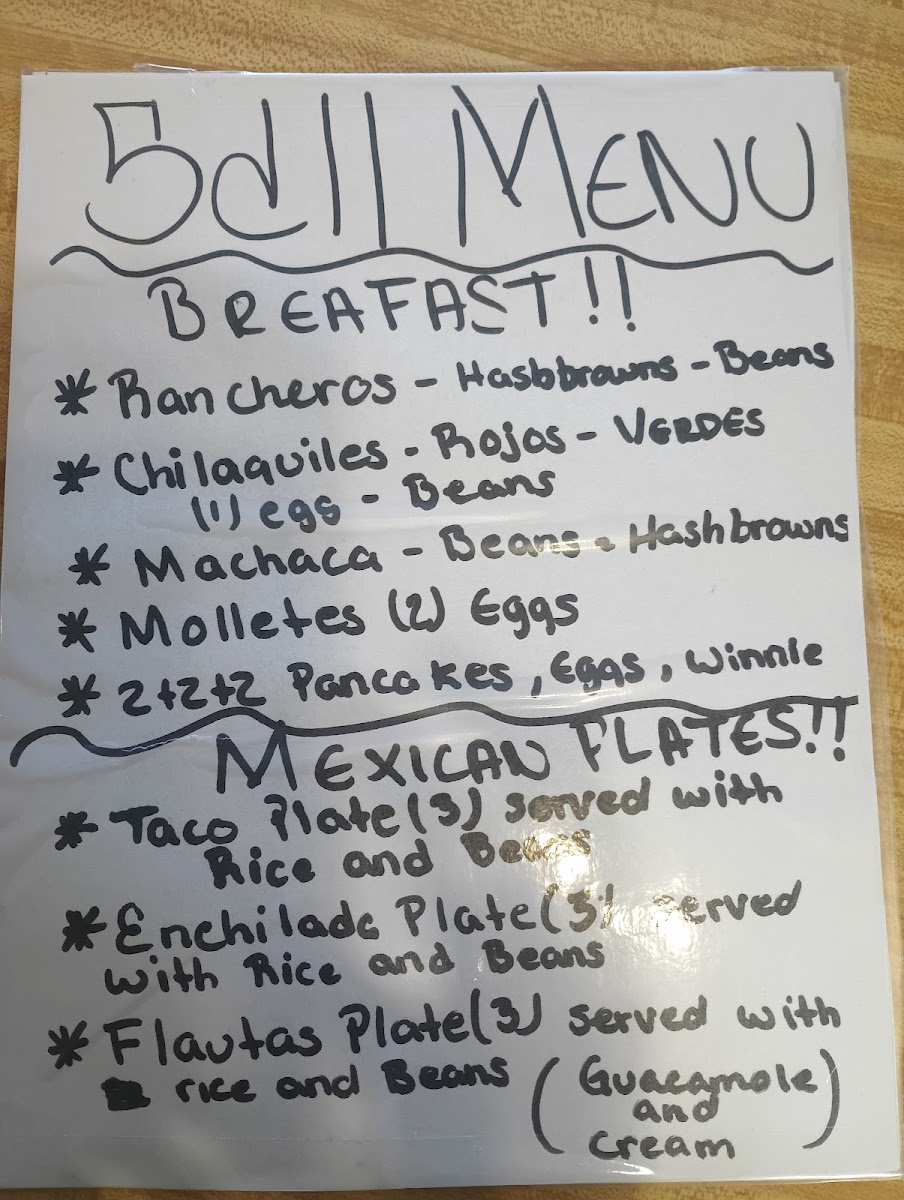 5dll MENU
BREAFAST!!
* Rancheros - Hasbbrowns - Beans
* Chilaquiles - Rojos - VERDES
(1) egg - Beans
* Machaca - Beans - Hashbrowns
* Molletes (2) Eggs
* 2+2+2 Pancakes, Eggs, Winnie
MEXICAN PLATES!!
* Taco Plate (3) served with
Rice and Beans
* Enchilada Plate (3) served
with Rice and Beans
* Flautas Plate (3) served with
rice and Beans (Guacamole
and
cream)